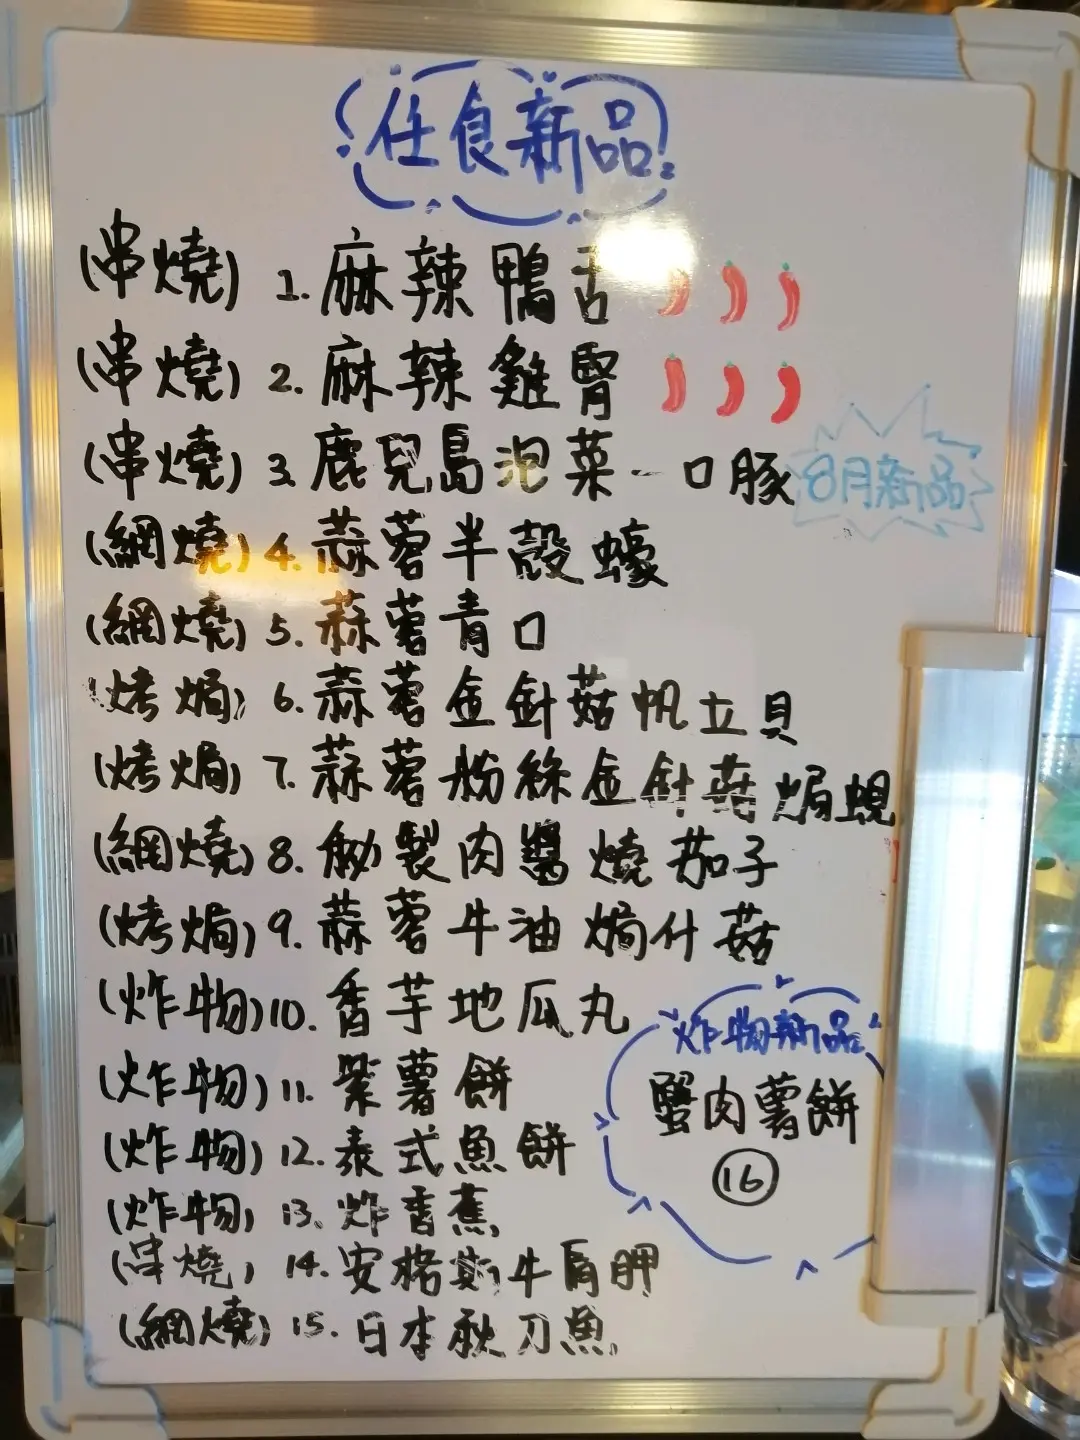 任食新品
(串燒) 1. 麻辣鴨舌
(串燒) 2. 麻辣雞腎
(串燒) 3. 鹿兒島泡菜一口豚
8月新品
(網燒) 4. 蒜蓉半殼蠔
(網燒) 5. 蒜蓉青口
(烤焗) 6. 蒜蓉金針菇帆立貝
(烤焗) 7. 蒜蓉粉絲金針菇焗蜆
(網燒) 8. 秘製肉醬燒茄子
(烤焗) 9. 蒜蓉牛油焗什菇
(炸物) 10. 香芋地瓜丸
(炸物) 11. 紫薯餅
(炸物) 12. 泰式魚餅
(炸物) 13. 炸香蕉
(串燒) 14. 安格斯牛肩胛
(網燒) 15. 日本秋刀魚
炸物新品
蟹肉薯餅
16